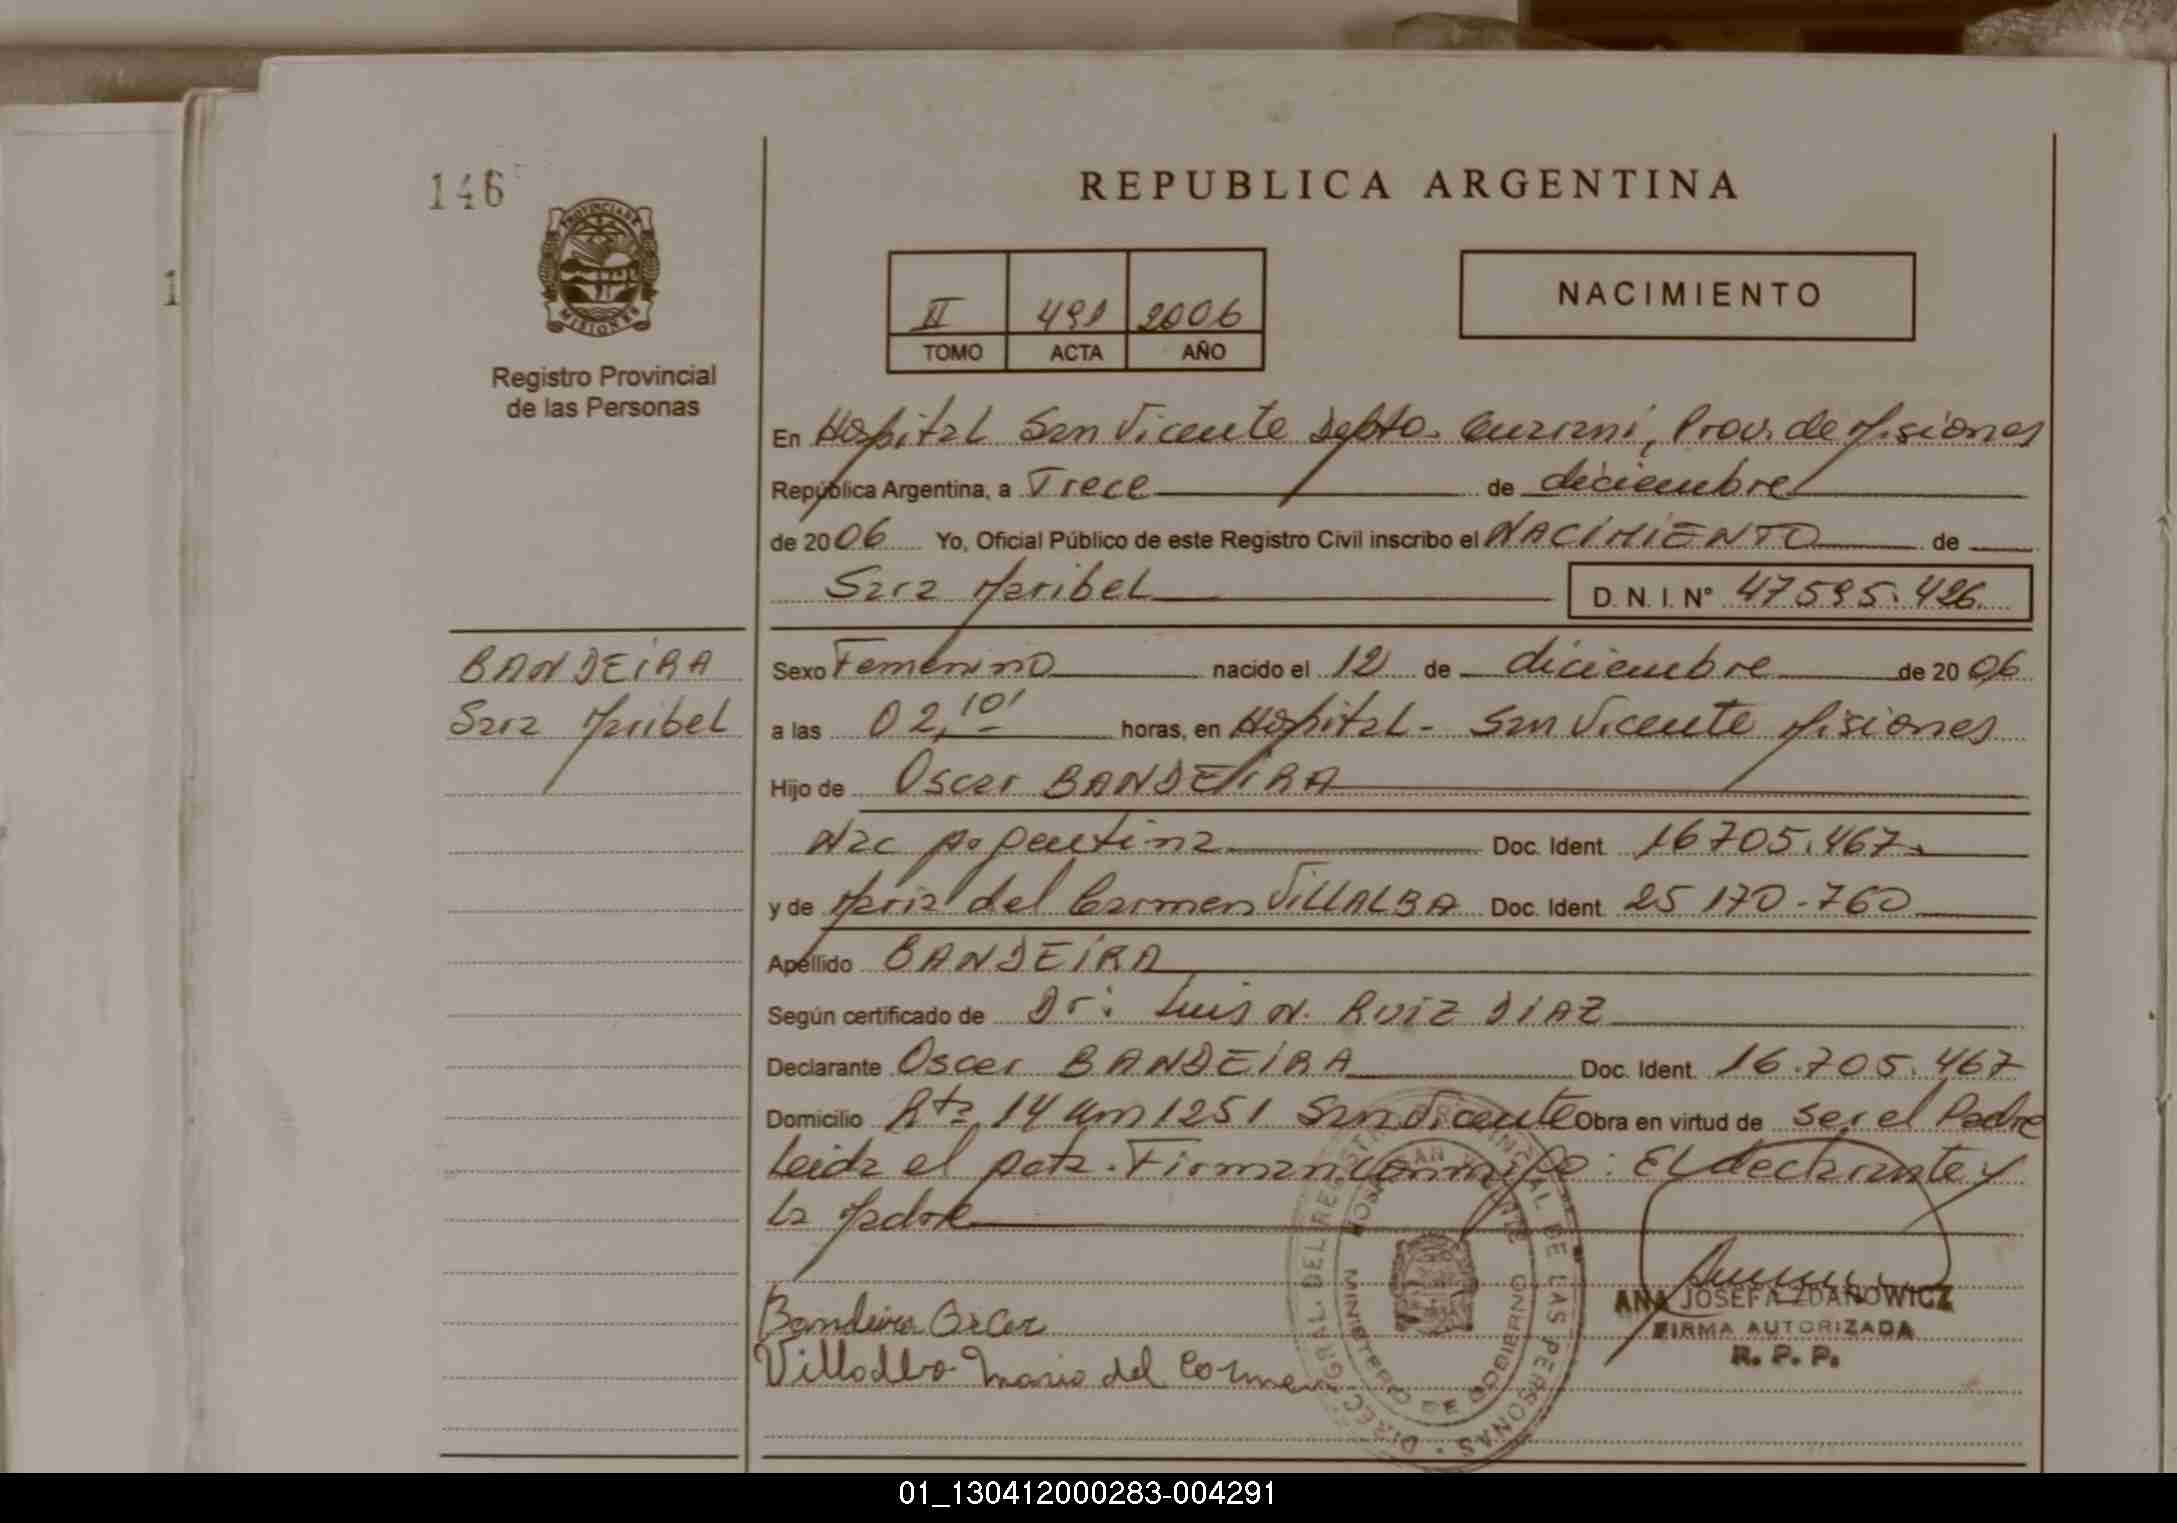 146
PROVINCIA DE
MISIONES
Registro Provincial
de las Personas
REPUBLICA ARGENTINA
II 491 2006
TOMO ACTA AÑO
NACIMIENTO
En Hospital San Vicente Depto. Guarani, Prov. de Misiones
República Argentina, a Trece de diciembre
de 2006 Yo, Oficial Público de este Registro Civil inscribo el NACIMIENTO de
Sara Maribel D. N. I. N° 47595.426
BANDEIRA
Sara Maribel
Sexo Femenino nacido el 12 de diciembre de 2006
a las 02,10' horas, en Hospital - San Vicente Misiones
Hijo de Oscar BANDEIRA
Nac Argentina Doc. Ident. 16705.467
y de Maria del Carmen VILLALBA Doc. Ident. 25 170.760
Apellido BANDEIRA
Según certificado de Dr: Luis N. RUIZ DIAZ
Declarante Oscar BANDEIRA Doc. Ident. 16.705.467
Domicilio Rta 14 Km 1251 San Vicente Obra en virtud de ser el Padre
Leida el Acta. Firman conmigo: El declarante y
la Madre
Bandeira Oscar
Villalba Maria del Carmen
DIREC. GRAL. DEL REGISTRO PROVINCIAL DE LAS PERSONAS
HOSP. SAN VICENTE
MINISTERIO DE GOBIERNO
ANA JOSEFA ZDANOWICZ
FIRMA AUTORIZADA
R. P. P.
01_130412000283-004291